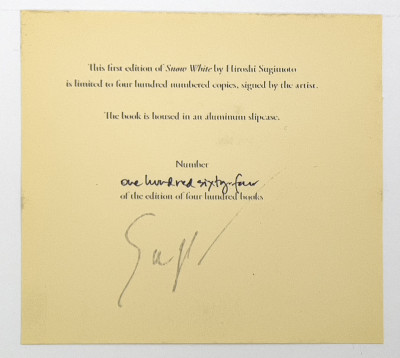 This first edition of Snow White by Hiroshi Sugimoto
is limited to four hundred numbered copies, signed by the artist.
The book is housed in an aluminum slipcase.
Number
one hundred sixty-four
of the edition of four hundred books